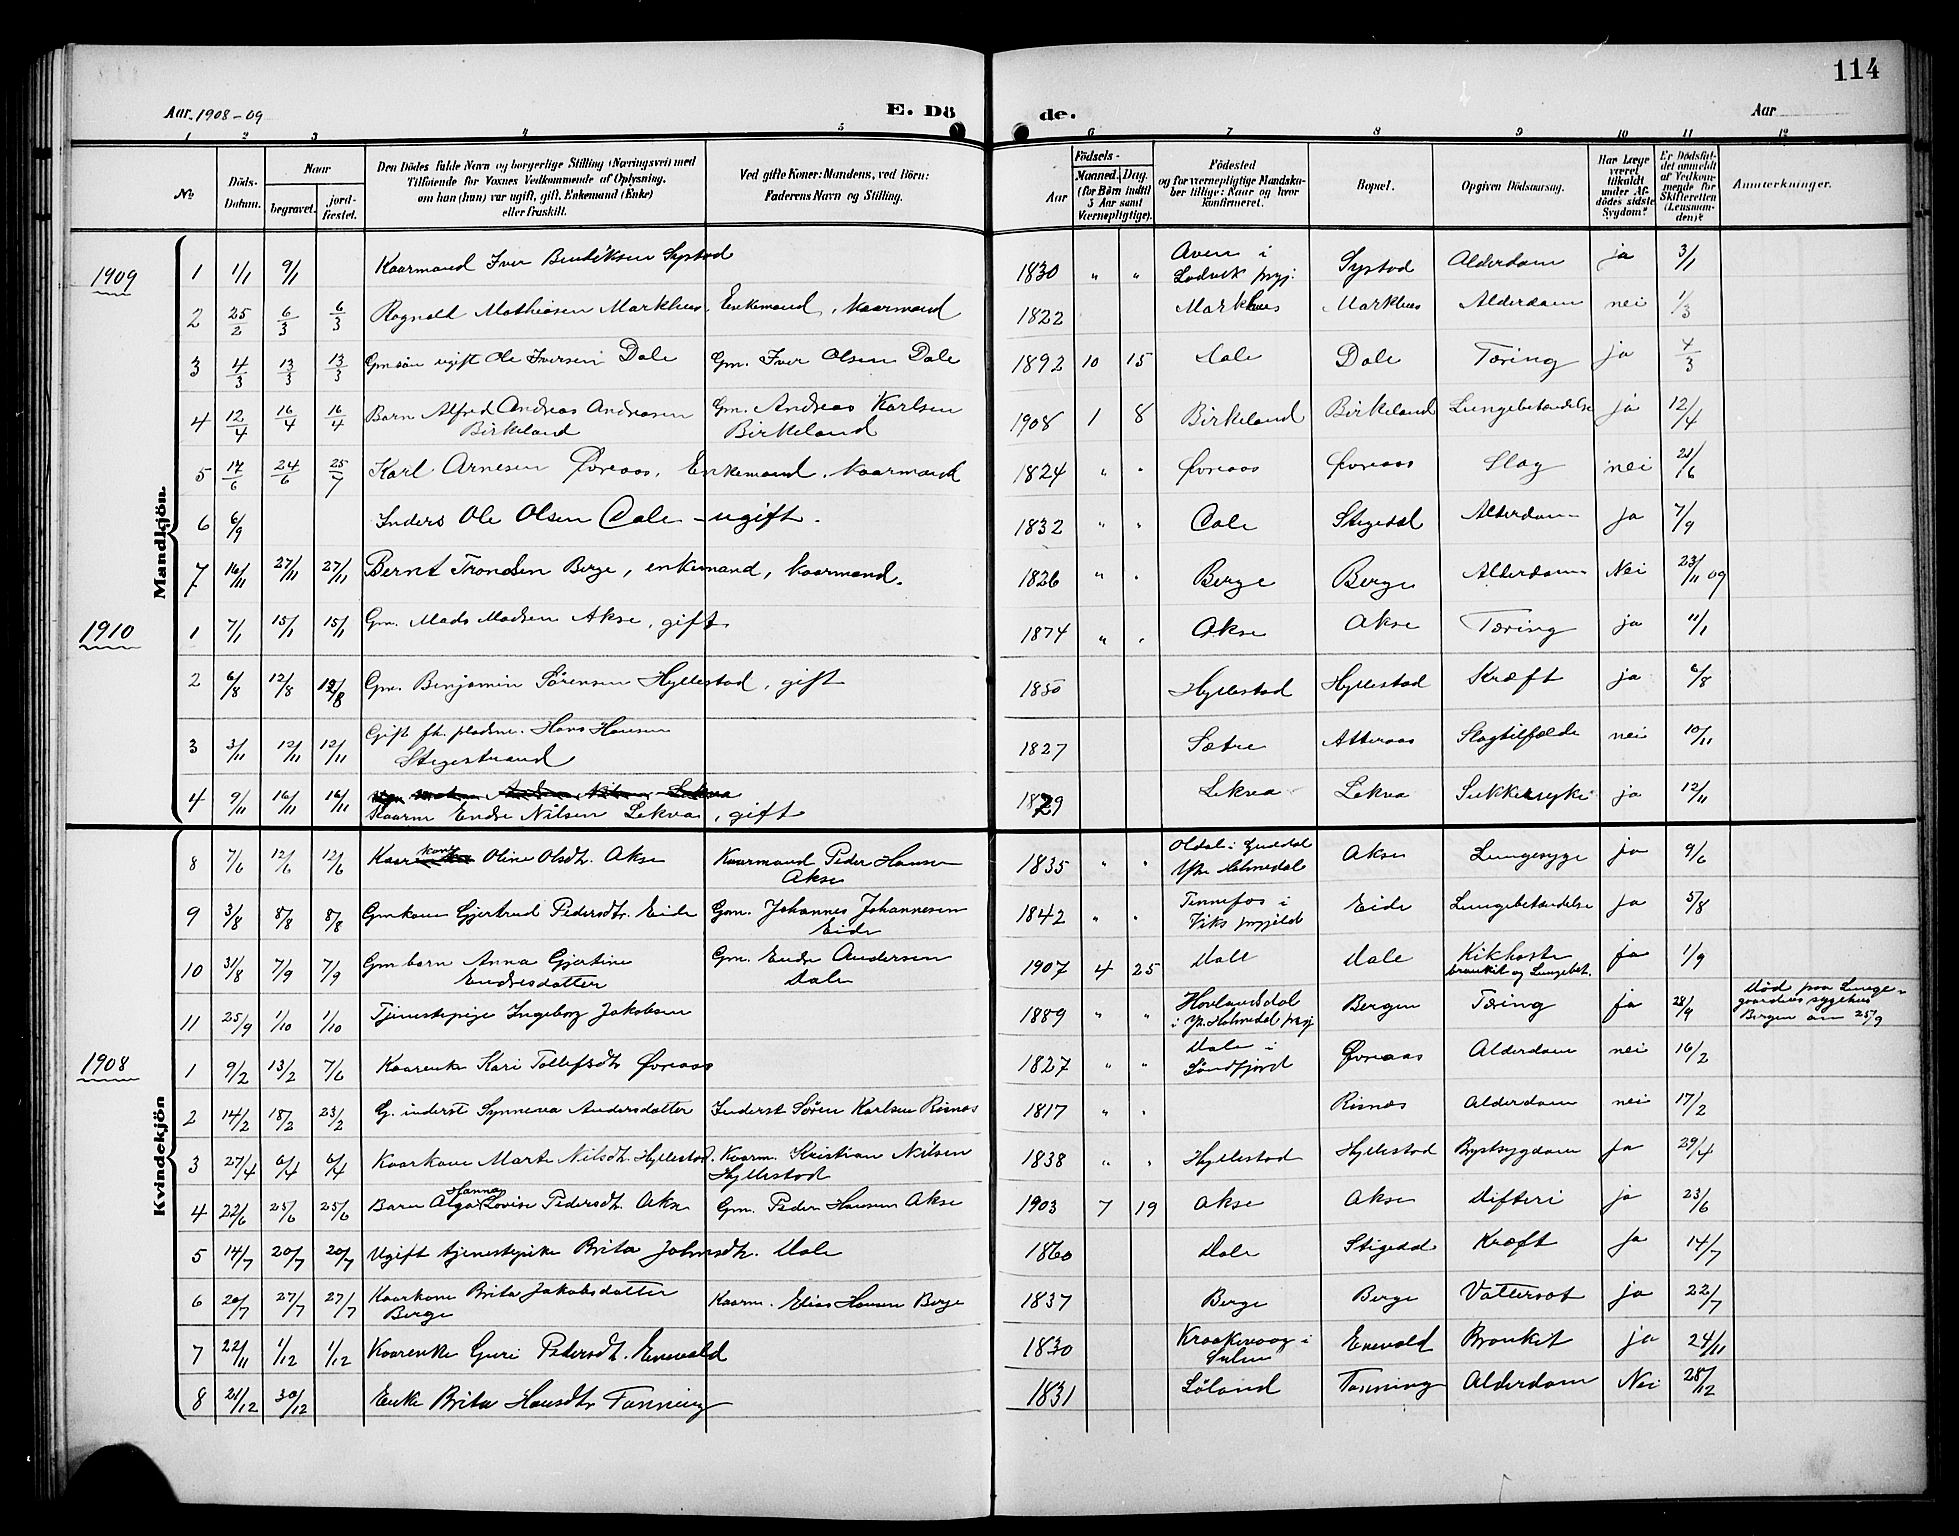 114
Aar 1908-09 E. Dö de. Aar
1 2 3 4 5 6 7 8 9 10 11 12
No. Döds-Datum. Naar begravet. jord-fæstet. Den Dödes fulde Navn og borgerlige Stilling (Næringsvei) med Tilföiende for Voxnes Vedkommende af Oplysning, om han (hun) var ugift, gift, Enkemand (Enke) eller fraskilt. Ved gifte Koner: Mandens, ved Börn: Faderens Navn og Stilling. Aar Födsels- Maaned. Dag. (for Børn indtil 5 Aar samt Værnepligtige). Födested og for værnepligtige Mandskaber tillige: Naar og hvor konfirmeret. Bopæl. Opgiven Dödsaarsag. Har Læge været tilkaldt under Afdödes sidste Sygdom? Er Dödsfaldet anmeldt af Vedkommende for Skifteretten (Lensmanden)? Anmærkninger.
Mandkjön.
1909
1 1/1 9/1 Kaarmand Iver Bendiksen Systad 1830 " " Aven i Ladvik prgj. Systad Alderdom ja 3/1
2 25/2 6/3 6/3 Rognald Mathiasen Markhus, Enkemand, Kaarmand 1822 Markhus Markhus Alderdom nei 1/3
3 4/3 13/3 13/3 Gmsön ugift Ole Iversen Dale Gm. Iver Olsen Dale 1892 10 15 Dale Dale Tæring ja 4/3
4 12/4 16/4 16/4 Barn Alfred Andreas Andreasen Birkeland Gm. Andreas Karlsen Birkeland 1908 1 8 Birkeland Birkeland Lungebetændelse ja 12/4
5 17/6 24/6 25/7 Karl Arnesen Øvreaas, Enkemand, Kaarmand 1824 " " Øvreaas Øvreaas Slag nei 21/6
6 6/9 Inders Ole Olsen Dale - ugift. 1832 " " Dale Stegedal Alderdom ja 7/9
7 16/11 27/11 27/11 Bernt Trondsen Berge, enkemand, kaarmand. 1826 " " Berge Berge Alderdom Nei 23/11 09
1910
1 7/1 15/1 15/1 Gm. Mads Madsen Akse, gift 1874 " " Akse Akse Tæring ja 11/1
2 6/8 12/8 12/8 Gm. Benjamin Sörensen Hyllestad, gift 1850 Hyllestad Hyllestad Kræft ja 6/8
3 3/11 12/11 12/11 Gift fh. pladsm. Hans Hansen Stegestrand 1827 Sætre Atteraas Slagtilfælde nei 10/11
4 9/11 16/11 16/11 Kaarm Endre Nilsen Lekva, gift 1829 Lekva Lekva Sukkersyke ja 12/11
Kvindekjön
8 7/6 12/6 12/6 Kaarkone Oline Olsdt. Akse Kaarmand Peder Hansen Akse 1835 " " Oldal i Guldal Ytre Holmedal Akse Lungesyge ja 9/6
9 3/8 8/8 8/8 Gmkone Gjertrud Pedersdtr. Eide Gm. Johannes Johannesen Eide 1842 " " Tennefos i Viks prgjeld Eide Lungebetændelse ja 5/8
10 31/8 7/9 7/9 Gmbarn Anna Gjertine Endresdatter Gm. Endre Andersen Dale 1907 4 25 Dale Dale Kikhoste bronkit og Lungebet. ja 1/9
11 25/9 1/10 1/10 Tjenestepige Ingeborg Jakobsen 1889 " " Hovlandsdal i Yt. Holmedal prgj Bergen Tæring ja 28/9 Död paa Lungegaardens sygehus Bergen am 25/9
1908
1 9/2 13/2 7/6 Kaarenke Kari Tollefsdtr Øvreaas 1827 " " Dale i Söndfjord Øvreaas Alderdom nei 16/2
2 14/2 18/2 23/2 G. inderst Synneva Andersdatter Inderst Sören Karlsen Risnæs 1817 " " Risnæs Alderdom nei 17/2
3 27/4 6/4 6/4 Kaarkone Marte Nilsdt. Hyllestad. Kaarm. Kristian Nilsen Hyllestad 1838 " " Hyllestad Hyllestad Brystsygdom ja 29/4
4 22/6 25/6 25/6 Barn Alga Hanna Lovise Pedersdt. Akse Gm. Peder Hansen Akse 1903 7 19 Akse Akse Difteri ja 23/6
5 14/7 20/7 20/7 Ugift tjenestepike Brita Johnsdt. Dale 1860 Dale Stigedal Kræft ja 14/7
6 20/7 27/7 27/7 Kaarkone Brita Jakobsdatter Berge Kaarm. Elias Hansen Berge 1837 Berge Berge Vattersot ja 22/7
7 22/11 1/12 1/12 Kaarenke Guri Pedersdt. Enevald 1830 Kraakevaag i Sulen Enevald Bronkit ja 24/11
8 21/12 30/12 Enke Brita Hansdtr Tanning 1831 Löland Tanning Alderdom Nei 28/12